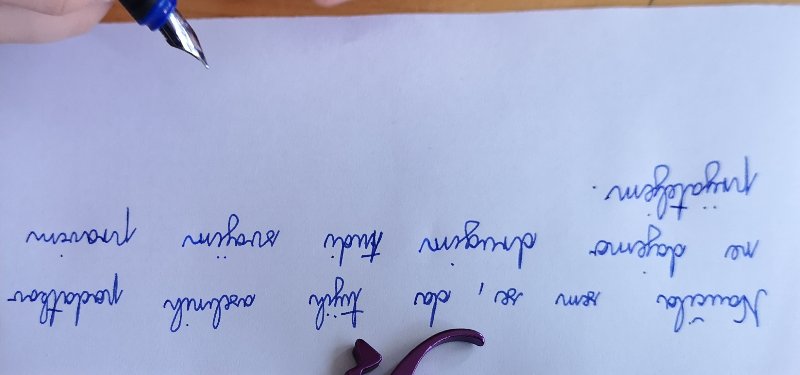 Naučila sem se, da tujih osebnih podatkov
ne dajemo drugim tudi svojim pravim
prijateljem.